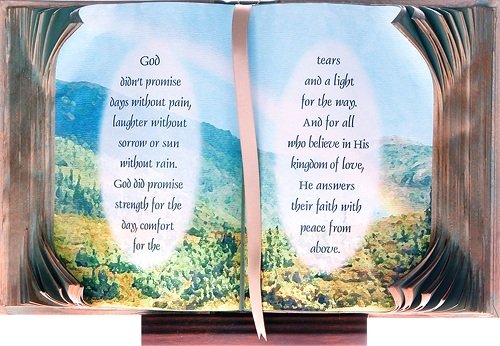 God
didn't promise
days without pain,
laughter without
sorrow or sun
without rain.
God did promise
strength for the
day, comfort
for the
tears
and a light
for the way.
And for all
who believe in His
kingdom of love,
He answers
their faith with
peace from
above.